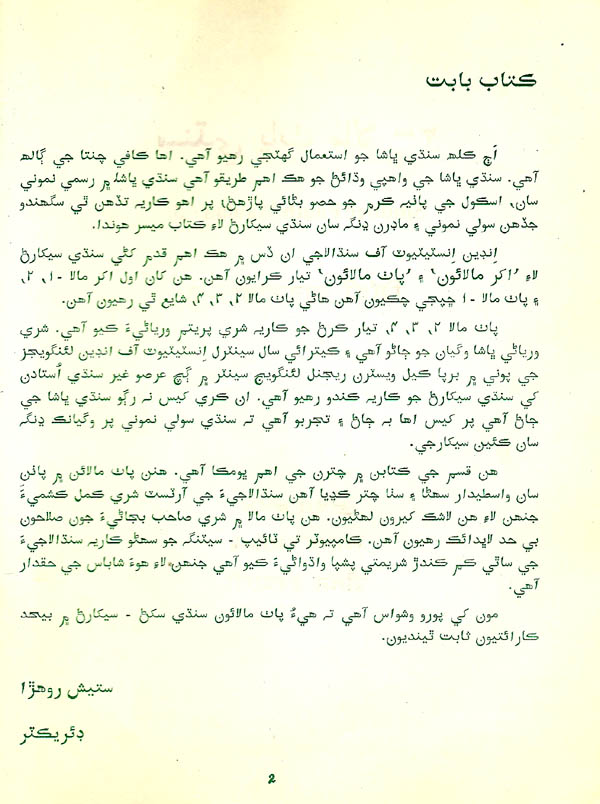 ڪتاب بابت
اَڄ ڪلھ سنڌي ڀاشا جو استعمال گهٽجي رهيو آهي. اها ڪافي چنتا جي ڳالھ
آهي. سنڌي ڀاشا جي واهپي وڌائڻ جو هڪ اهم طريقو آهي سنڌي ڀاشا ۾ رسمي نموني
سان، اسڪول جي پاٺيہ ڪرم جو حصو بڻائي پاڙهڻ؛ پر اهو ڪاريہ تڏهن ٿي سگهندو
جڏهن سولي نموني ۽ ماڊرن ڍنگہ سان سنڌي سيکارڻ لاءِ ڪتاب ميسر هوندا.
اِنڊين اِنسٽيٽيوٽ آف سنڌالاجي ان ڏس ۾ هڪ اهم قدم کڻي سنڌي سيکارڻ
لاءِ ’اکر مالائون‘ ۽ ’پاٺ مالائون‘ تيار ڪرايون آهن. هن کان اول اکر مالا -۱، ۲،
۽ پاٺ مالا - ۱ ڇپجي چڪيون آهن هاڻي پاٺ مالا ۲، ۳، ۴، شايع ٿي رهيون آهن.
پاٺ مالا ۲، ۳، ۴، تيار ڪرڻ جو ڪاريہ شري پريتم ورياڻيءَ ڪيو آهي. شري
ورياڻي ڀاشا وگيان جو ڄاڻو آهي ۽ ڪيترائي سال سينٽرل اِنسٽيٽيوٽ آف انڊين لئنگويجز
جي پوني ۾ برپا ڪيل ويسٽرن ريجنل لئنگويج سينٽر ۾ ڳچ عرصو غير سنڌي اُستادن
کي سنڌي سيکارڻ جو ڪاريہ ڪندو رهيو آهي. ان ڪري کيس نہ رڳو سنڌي ڀاشا جي
ڄاڻ آهي پر کيس اها بہ ڄاڻ ۽ تجربو آهي تہ سنڌي سولي نموني پر وگيانڪ ڍنگہ
سان ڪئين سيکارجي.
هن قسم جي ڪتابن ۾ چترن جي اهم ڀومڪا آهي. هنن پاٺ مالائن ۾ پاٺن
سان واسطيدار سهڻا ۽ سٺا چتر ڪڍيا آهن سنڌالاجيءَ جي آرٽسٽ شري ڪمل ڪشميءَ
جنهن لاءِ هن لاشڪ کيرون لهڻيون. هن پاٺ مالا ۾ شري صاحب بجاڻيءَ جون صلاحون
بي حد لاڀدائڪ رهيون آهن. ڪامپيوٽر تي ٽائيپ - سيٽنگہ جو سهڻو ڪاريہ سنڌالاجيءَ
جي ساٿي ڪم ڪندڙ شريمتي پشپا واڌواڻيءَ ڪيو آهي جنهن لاءِ هوءَ شاباس جي حقدار
آهي.
مون کي پورو وشواس آهي تہ هيءُ پاٺ مالائون سنڌي سکڻ - سيکارڻ ۾ بيحد
ڪارائتيون ثابت ٿينديون.
ستيش روهڙا
ڊئريڪٽر
2